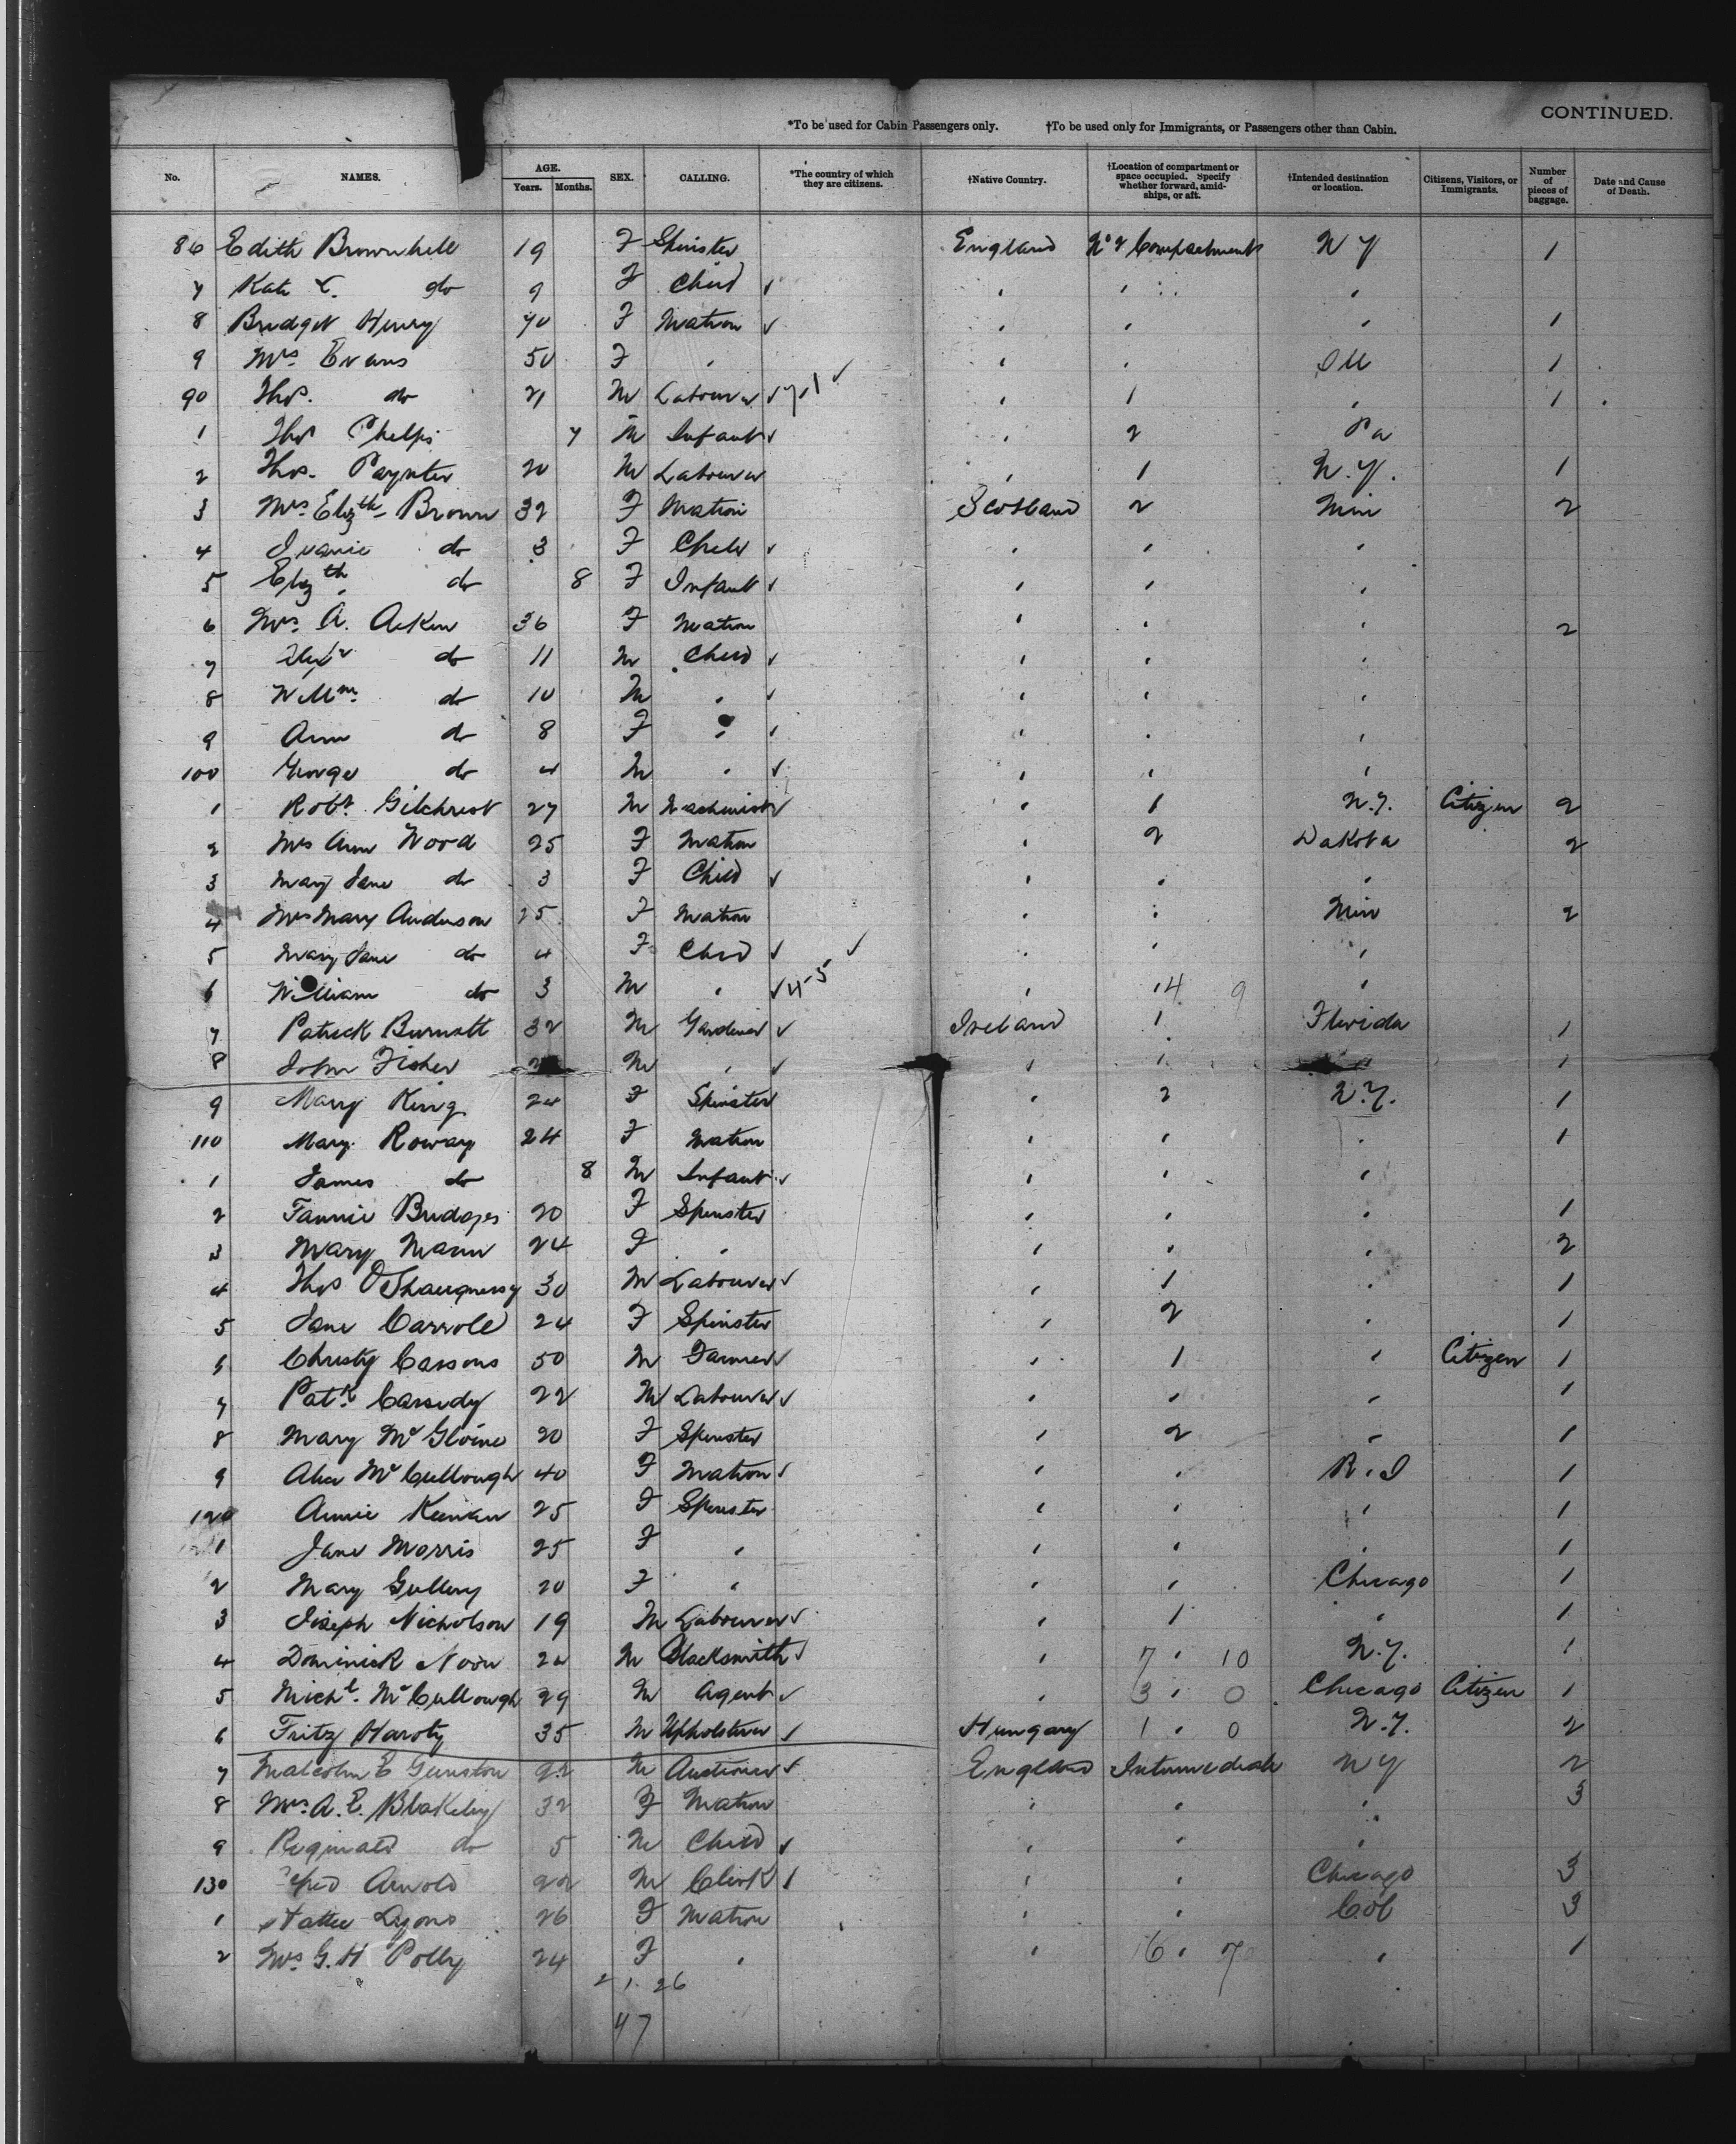 CONTINUED.
*To be used for Cabin Passengers only. †To be used only for Immigrants, or Passengers other than Cabin.
No. NAMES. AGE. Years. Months. SEX. CALLING. *The country of which they are citizens. †Native Country. †Location of compartment or space occupied. Specify whether forward, amidships, or aft. †Intended destination or location. Citizens, Visitors, or Immigrants. Number of pieces of baggage. Date and Cause of Death.
86 Edith Brownhill 19 F Spinster England No 2 Compartment N Y 1
7 Kate do 9 F Child ✓ " " "
8 Bridget Henry 40 F Matron ✓ " " " 1
9 Mrs Evans 50 F " " " Ill 1
90 Thos. do 21 M Labourer ✓ " 1 " 1
1 Thos Phelps 7 M Infant ✓ " 2 Pa
2 Thos. Paynter 20 M Labourer " 1 N.Y. 1
3 Mrs Elizth Brown 32 F Matron Scotland 2 Min 2
4 do 3 F Child ✓ " " "
5 Elizth do 8 F Infant ✓ " " "
6 Mrs. A. Aitken 36 F Matron " " " 2
7 Alexr do 11 M Child ✓ " " "
8 Willm. do 10 M " ✓ " " "
9 Ann do 8 F " ✓ " " "
100 George do 4 M " ✓ " " "
1 Robt. Gilchrist 27 M Machinist ✓ " 1 N.Y. Citizen 2
2 Mrs Ann Wood 25 F Matron " 2 Dakota 2
3 Mary Jane do 3 F Child ✓ " " "
4 Mrs Mary Anderson 25 F Matron " " Min 2
5 Mary Jane do 4 F Child ✓ " " "
6 William do 3 M " ✓ 45 " " 14 9 "
7 Patrick Burnett 32 M Gardener ✓ Ireland 1 Florida 1
8 John Fisher M " ✓ " " " 1
9 Mary King 24 F Spinster " 2 N.Y. 1
110 Mary Roway 24 F Matron " " " 1
1 James do 8 M Infant ✓ " " "
2 Fannie Bridges 20 F Spinster " " " 1
3 Mary Mann 24 F " " " " 2
4 Thos O'Shaugnessy 30 M Labourer ✓ " 1 " 1
5 Jane Carroll 24 F Spinster " 2 " 1
6 Christy Cassons 50 M Farmer ✓ " 1 " Citizen 1
7 Patk Cassidy 22 M Labourer ✓ " " " 1
8 Mary McGloine 20 F Spinster " 2 " 1
9 Alice McCullough 40 F Matron ✓ " " R.I 1
120 Annie Keenan 25 F Spinster " " " 1
1 Jane Morris 25 F " " " " 1
2 Mary Gullery 20 F " " " Chicago 1
3 Joseph Nicholson 19 M Labourer ✓ " 1 " 1
4 Dominick Noon 24 M Blacksmith ✓ " 7 " 10 N.Y. 1
5 Michl. McCullough 29 M Agent ✓ " 3 " 0 Chicago Citizen 1
6 Fritz Haroty 35 M Upholsterer ✓ Hungary 1 " 0 N.Y. 2
7 Malcolm E Gunston 22 M ✓ England Intermediate N Y 2
8 Mrs. A. E. Blakeley 32 F Matron " " " 3
9 Reginald do 5 M Child ✓ " " "
130 Arnold 22 M Clerk ✓ " " Chicago 3
1 Lyons 26 F Matron " " Col 3
2 Mrs. G. H Polly 24 F " " 16 " 7 " 1
2 1. 26
47